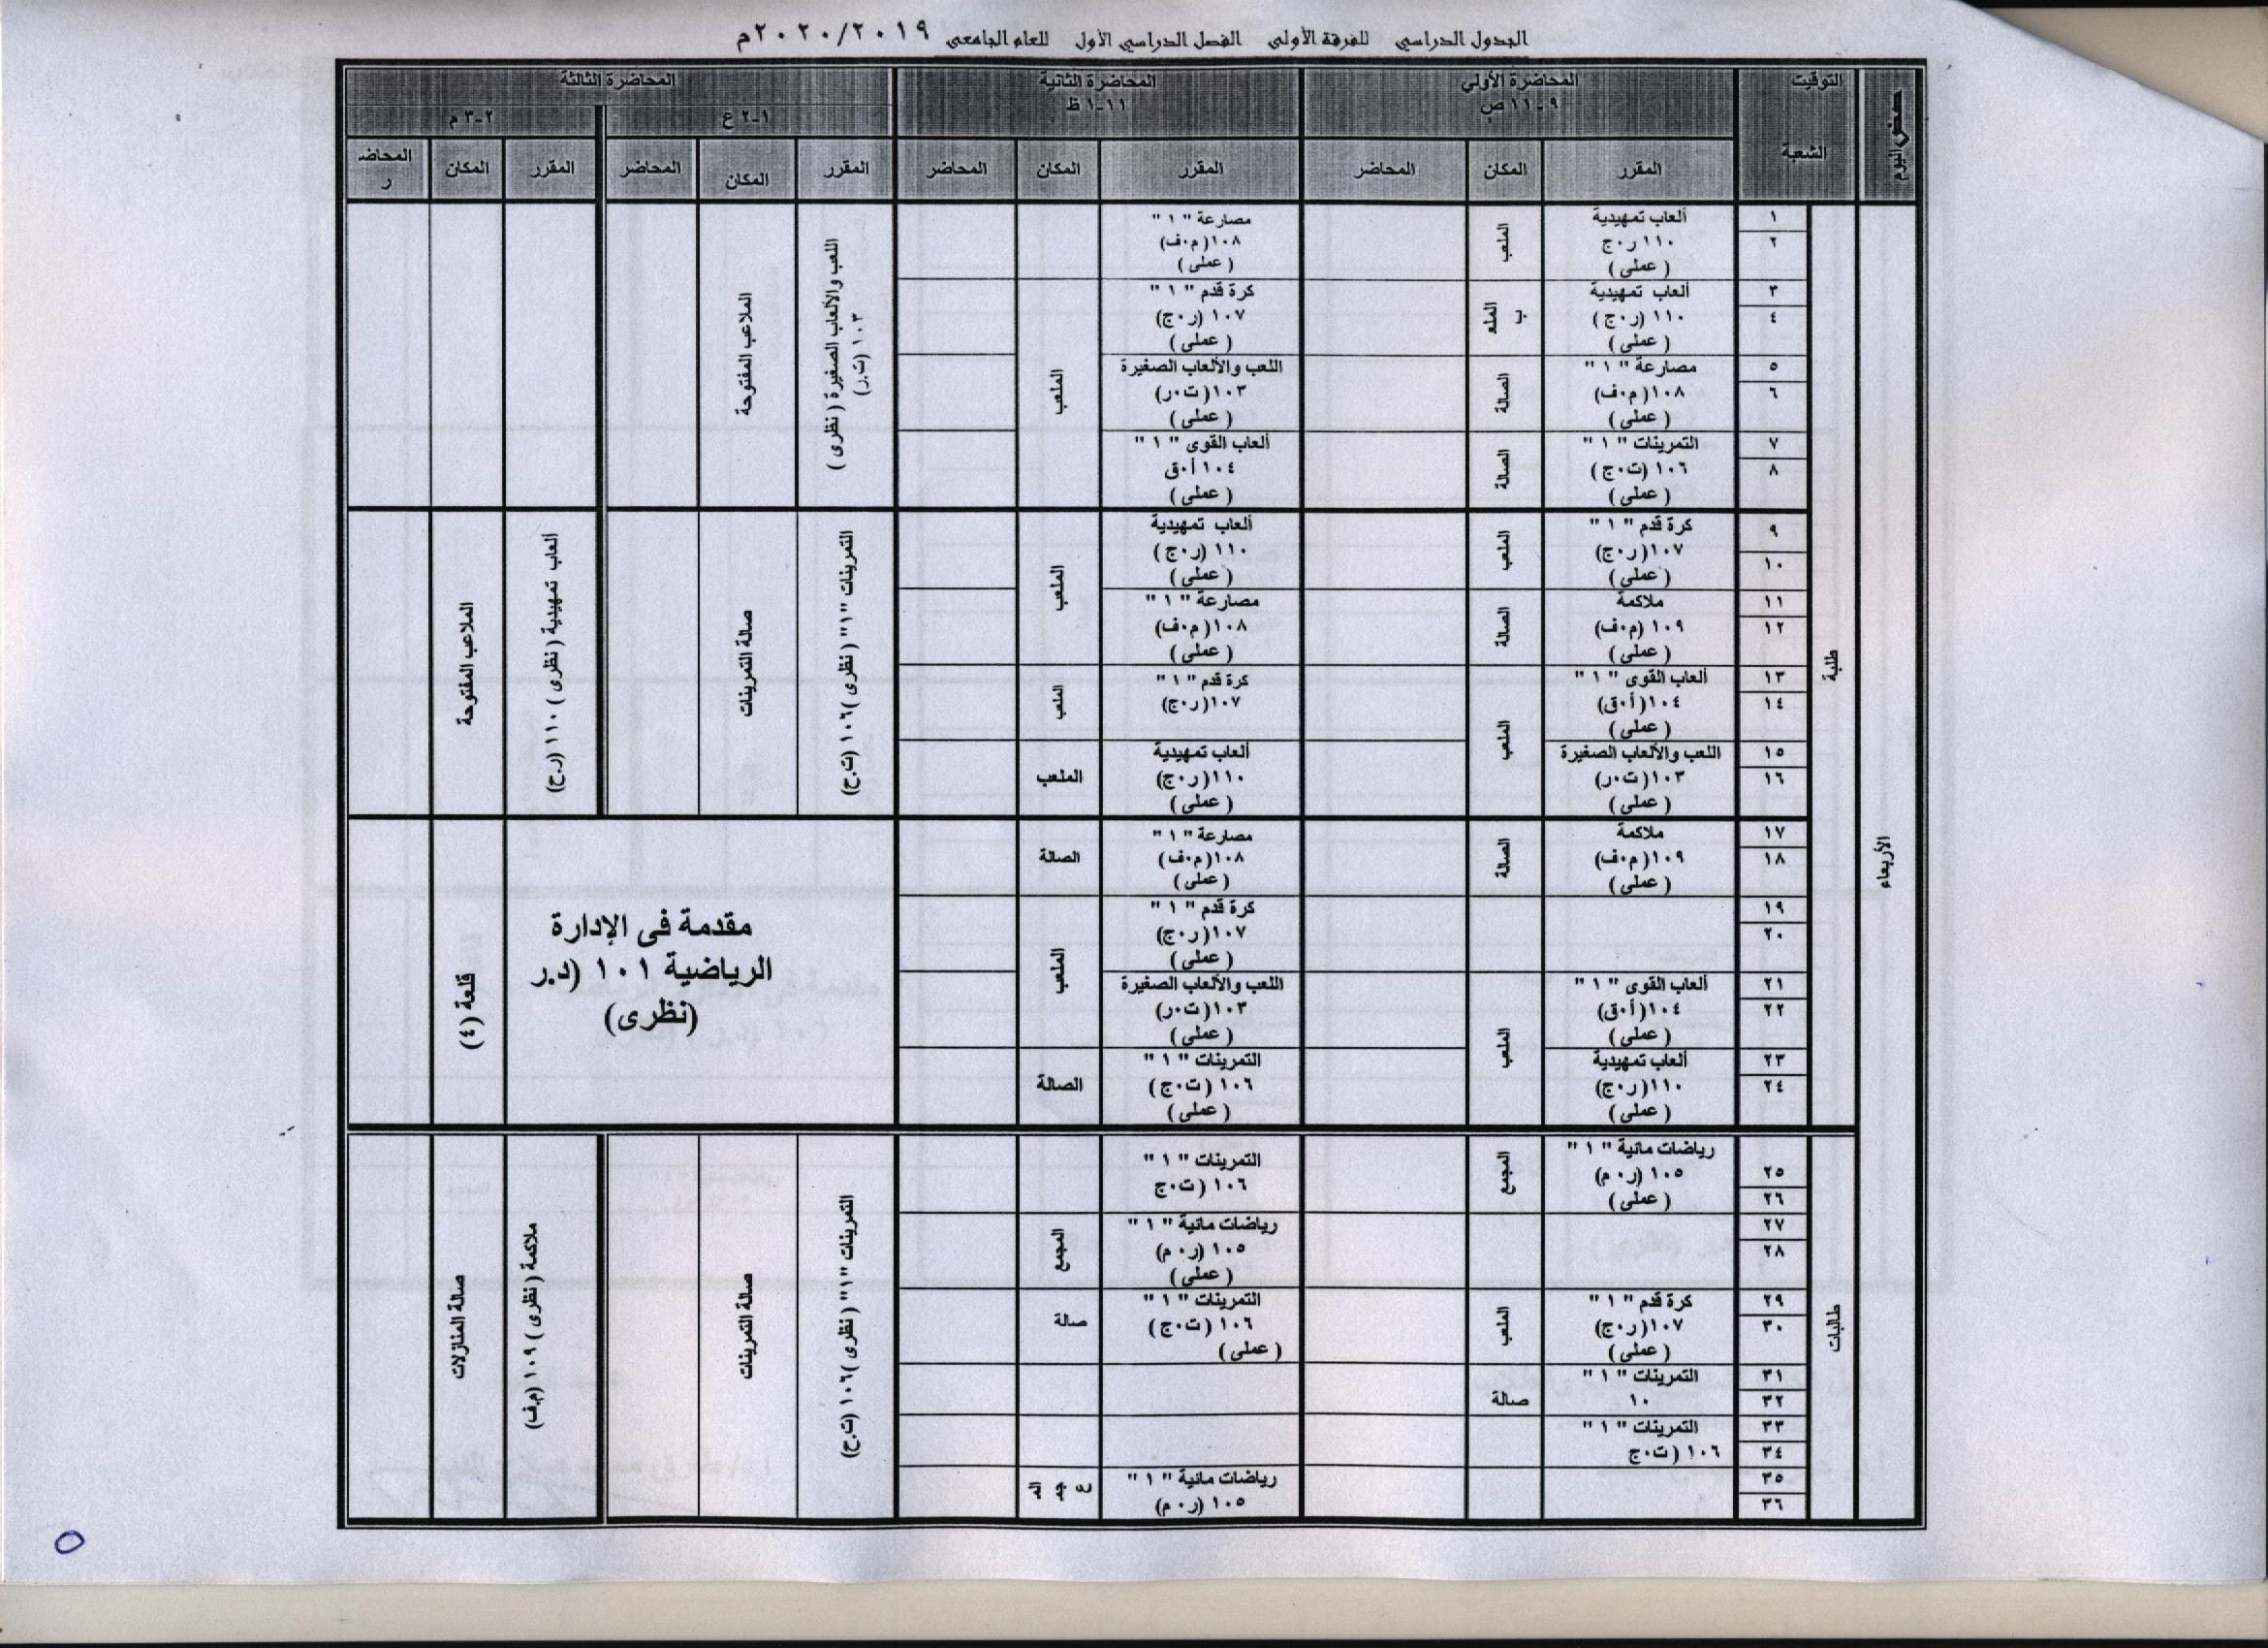 الجدول الدراسي للفرقة الأولى الفصل الدراسي الأول للعام الجامعى ٢٠٢٠/٢٠١٩م
اليوم
التوقيت
الشعبة
المحاضرة الأولي
٩ - ١١ ص
المحاضرة الثانية
١١-١ ظ
المحاضرة الثالثة
١-٢ ع
٢-٣ م
المقرر
المكان
المحاضر
المقرر
المكان
المحاضر
المقرر
المكان
المحاضر
المقرر
المكان
المحاضر
الأربعاء
طلبة
١
٢
ألعاب تمهيدية
١١٠ ر٠ج
(عملى)
الملعب
مصارعة " ١ "
١٠٨ (م٠ف)
(عملى)
اللعب والألعاب الصغيرة ( نظرى )
١٠٣ (ت.ر)
الملاعب المفتوحة
٣
٤
ألعاب تمهيدية
١١٠ (ر٠ج)
(عملى)
الملعب
كرة قدم " ١ "
١٠٧ (ر٠ج)
(عملى)
الملعب
٥
٦
مصارعة " ١ "
١٠٨ (م٠ف)
(عملى)
الصالة
اللعب والألعاب الصغيرة
١٠٣ (ت٠ر)
(عملى)
٧
٨
التمرينات " ١ "
١٠٦ (ت٠ج)
(عملى)
الصالة
ألعاب القوى " ١ "
١٠٤ أ٠ق
(عملى)
٩
١٠
كرة قدم " ١ "
١٠٧ (ر٠ج)
(عملى)
الملعب
ألعاب تمهيدية
١١٠ (ر٠ج)
(عملى)
الملعب
التمرينات "١" ( نظرى ) ١٠٦ (ت.ج)
صالة التمرينات
ألعاب تمهيدية ( نظرى ) ١١٠ (ر.ج)
الملاعب المفتوحة
١١
١٢
ملاكمة
١٠٩ (م٠ف)
(عملى)
الصالة
مصارعة " ١ "
١٠٨ (م٠ف)
(عملى)
١٣
١٤
ألعاب القوى " ١ "
١٠٤ (أ٠ق)
(عملى)
الملعب
كرة قدم " ١ "
١٠٧ (ر٠ج)
الملعب
١٥
١٦
اللعب والألعاب الصغيرة
١٠٣ (ت٠ر)
(عملى)
ألعاب تمهيدية
١١٠ (ر٠ج)
(عملى)
الملعب
١٧
١٨
ملاكمة
١٠٩ (م٠ف)
(عملى)
الصالة
مصارعة " ١ "
١٠٨ (م٠ف)
(عملى)
الصالة
مقدمة فى الإدارة
الرياضية ١٠١ (د.ر
(نظرى)
قلعة (٤)
١٩
٢٠
كرة قدم " ١ "
١٠٧ (ر٠ج)
(عملى)
الملعب
٢١
٢٢
ألعاب القوى " ١ "
١٠٤ (أ٠ق)
(عملى)
الملعب
اللعب والألعاب الصغيرة
١٠٣ (ت٠ر)
(عملى)
٢٣
٢٤
ألعاب تمهيدية
١١٠ (ر٠ج)
(عملى)
التمرينات " ١ "
١٠٦ (ت٠ج)
(عملى)
الصالة
طالبات
٢٥
٢٦
رياضات مائية " ١ "
١٠٥ (ر٠م)
(عملى)
المجمع
التمرينات " ١ "
١٠٦ (ت٠ج
التمرينات "١" ( نظرى ) ١٠٦ (ت.ج)
صالة التمرينات
ملاكمة ( نظرى ) ١٠٩ (م.ف)
صالة المنازلات
٢٧
٢٨
رياضات مائية " ١ "
١٠٥ (ر٠م)
(عملى)
المجمع
٢٩
٣٠
كرة قدم " ١ "
١٠٧ (ر٠ج)
(عملى)
الملعب
التمرينات " ١ "
١٠٦ (ت٠ج)
(عملى)
صالة
٣١
٣٢
التمرينات " ١ "
١٠
صالة
٣٣
٣٤
التمرينات " ١ "
١٠٦ (ت٠ج
٣٥
٣٦
رياضات مائية " ١ "
١٠٥ (ر٠م)
المجمع